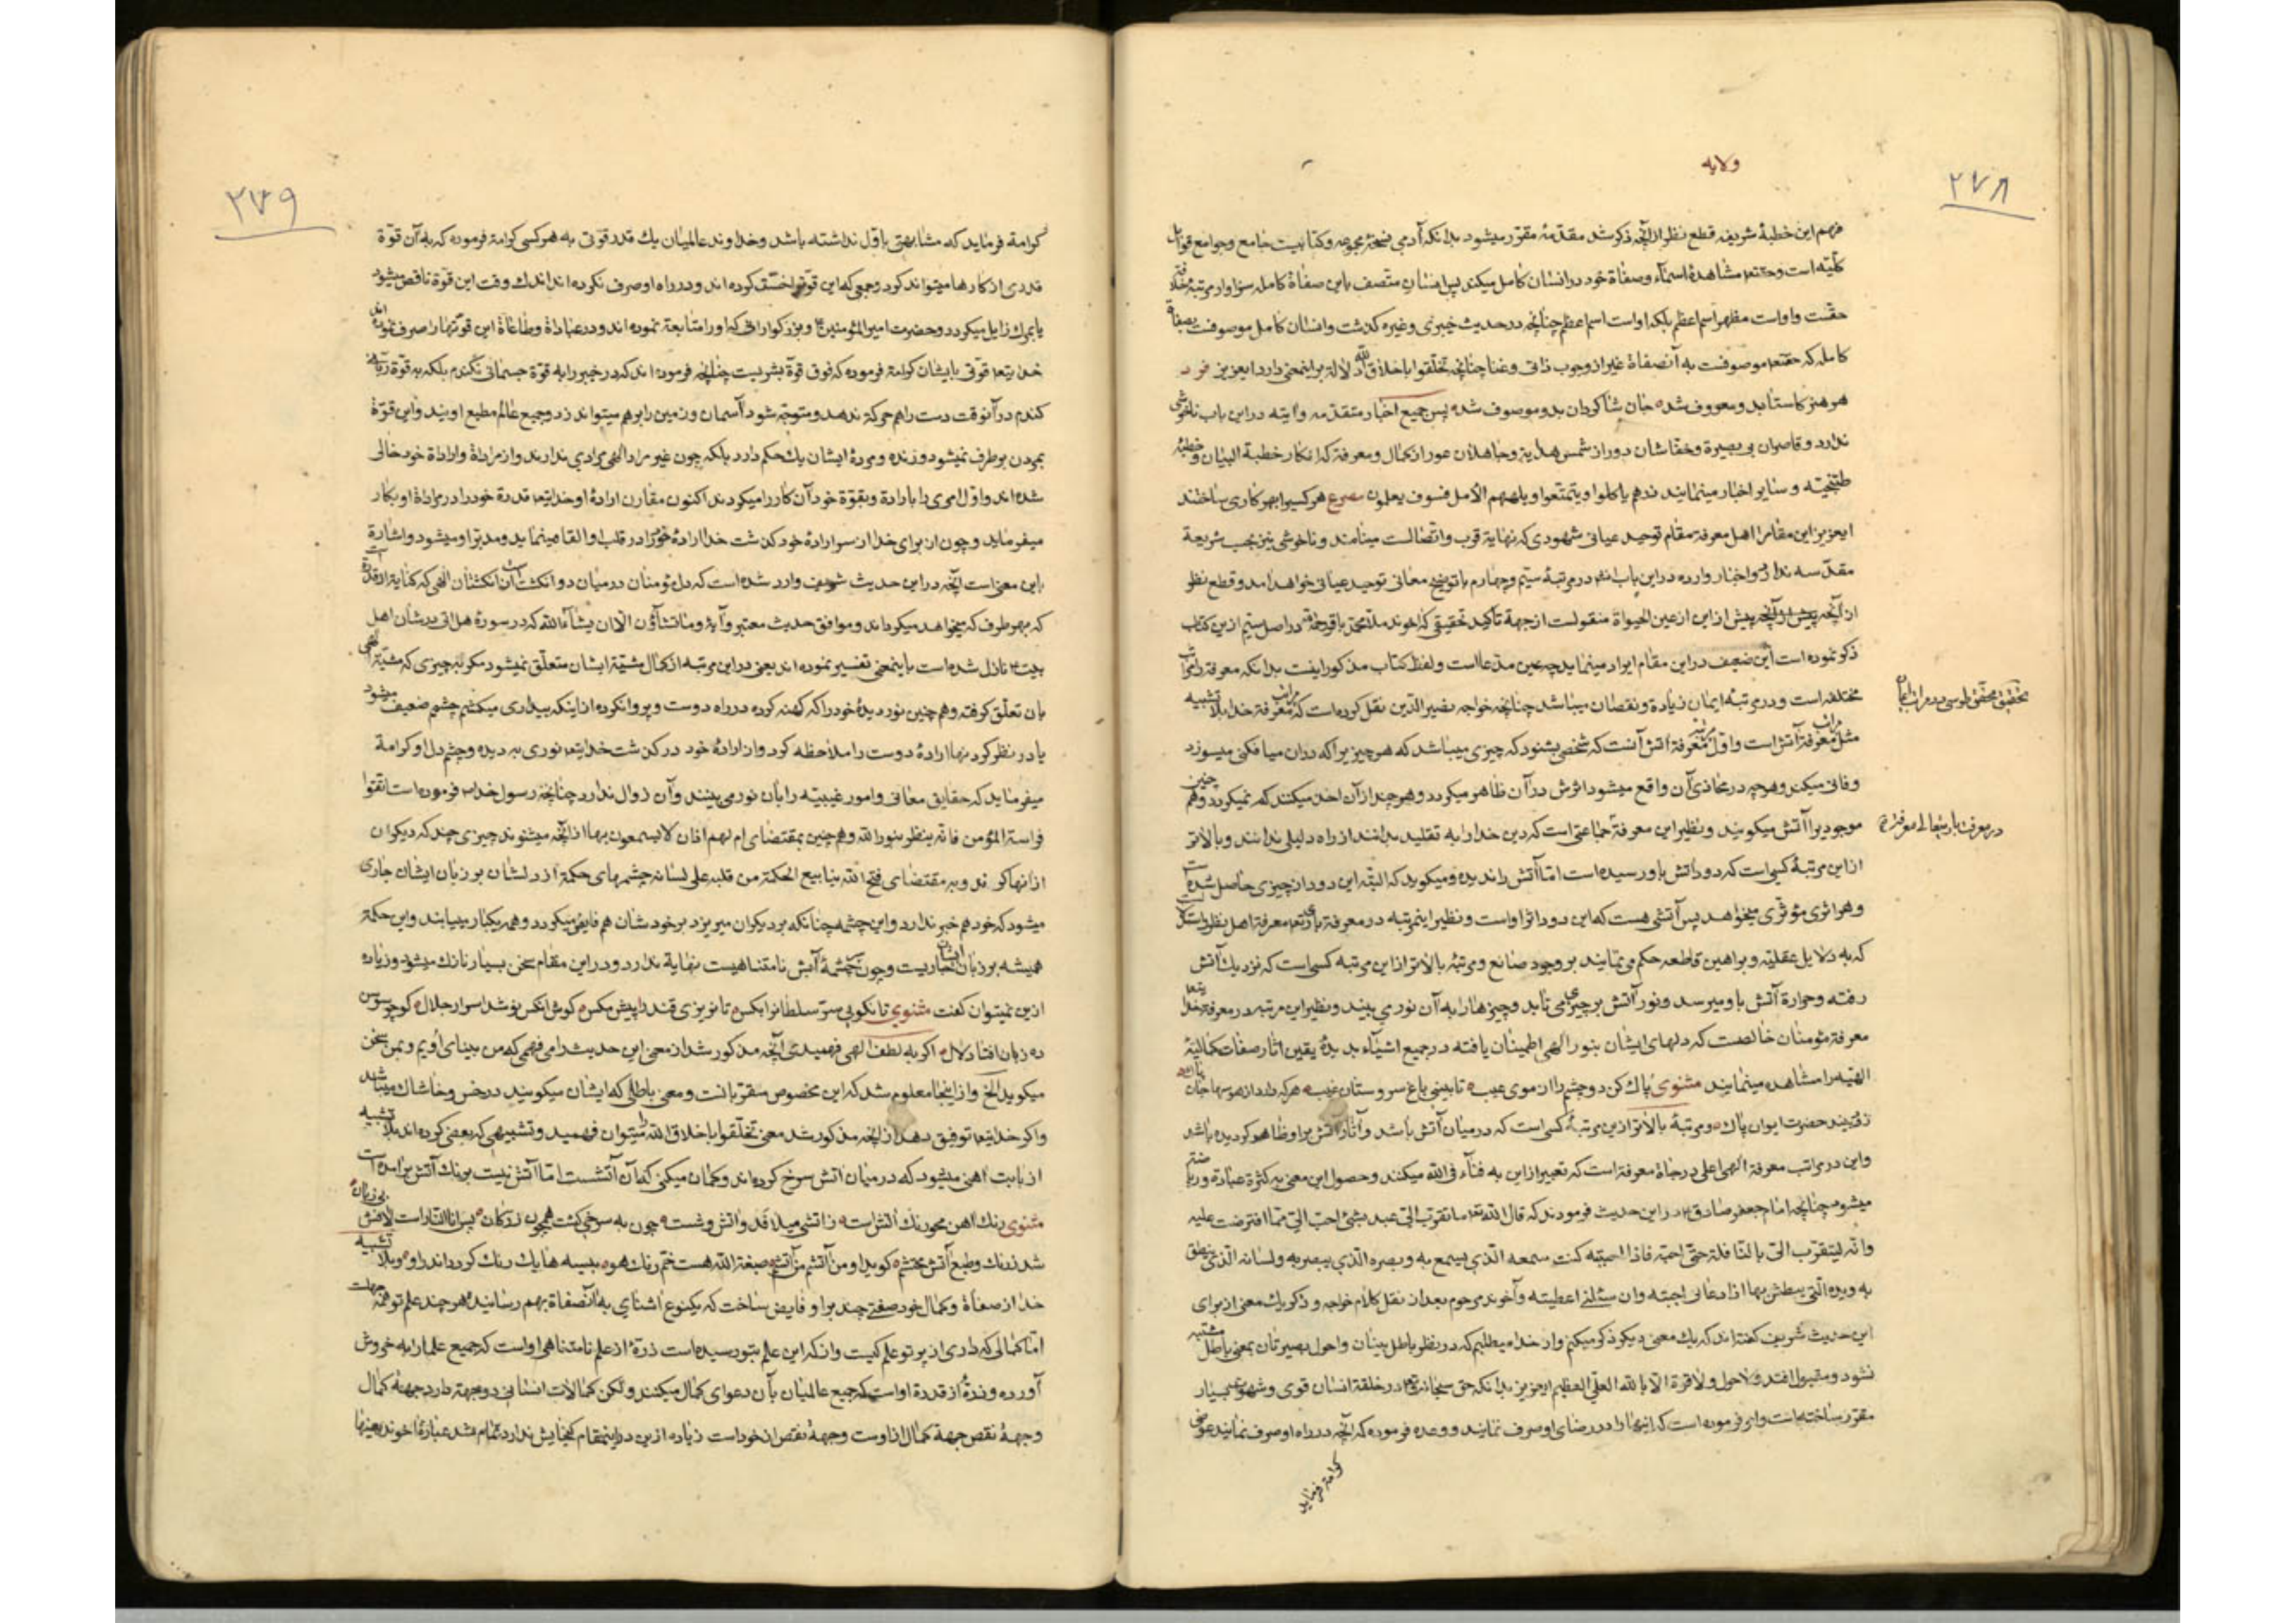 ولایه
۲۷۸
فهم این خطبهٔ شریفه قطع نظر از آنچه ذکر شد مقدّمهٔ مقرّر میشود بدانکه آدمی نسخهٔ مجموعه و کتابیست جامع و جوامع قوابل
کلّیّه است و حقتعا مشاهدهٔ اسمآء و صفاة خود در انسان کامل میکند پس انسان متصف باین صفاة کامله سزاوار مرتبهٔ خلافة
حقّست و اواست مظهر اسم اعظم بلکه اواست اسم اعظم چنانچه در حدیث خیبری و غیره گذشت و انسان کامل موصوفست بصفاة
کامله که حقتعا موصوفست به آنصفاة غیر از وجوب ذاتی و غنا چنانچه تخلّقوا باخلاق اللّه دلالة بر اینمعنی دارد ایعزیز فرد
هر هنر کاستاد بدو معروف شده جان شاگردان بدو موصوف شده پس جمیع اخبار متقدّمه و آیته در این باب ناخوشی
ندارد و قاصران بی بصیرة و خفاشان دور از شمس هدایة و جاهلان عور از کمال و معرفة که انکار خطبة البیان و خطبهٔ
طتنجیّه و سایر اخبار مینمایند ذرهم یاکلوا و یتمتعوا و یلههم الامل فسوف یعلمون مصرع هر کسیرا بهر کاری ساختند
ایعزیز این مقامرا اهل معرفة مقام توحید عیانی شهودی که نهایة قرب و اتصالست مینامند و ناخوشی نیز بحسب شریعة
مقدّسه ندارد و اخبار وارده در این باب انشا در مرتبهٔ سیّم و چهارم با توضیح معانی توحید عیانی خواهد امد و قطع نظر
از آنچه پیش از آنچه پیش از این از عین الحیوة منقولست از جهة تأکید تحقیقی که اخوند ملا محمّد باقر در اصل سیّم ازین کتاب
ذکر نموده است این ضعیف در این مقام ایراد مینماید چه عین مدّعااست و لفظ کتاب مذکور اینست بدانکه معرفة را مراتب
مختلفه است و در مرتبهٔ ایمان زیادة و نقصان میباشد چنانچه خواجه نصیر الدّین نقل کرده است که مراتب معرفة خدا بلا تشبیه
مثل مراتب معرفة آتش است و اوّل مرتبه معرفة آتش آنست که شخصی بشنود که چیزی میباشد که هر چیز یرا که در ان میافکنی میسوزد
و فانی میکند و هر چه در محاذی آن واقع میشود اثرش در آن ظاهر میگردد و هر چند از آن اخذ میکنند کم نمیگردد و همچنین
موجودیرا آتش میگویند و نظیر این معرفة جماعتی است که دین خدا را به تقلید بدانند از راه دلیلی ندانند و بالاتر
از این مرتبهٔ کسی است که دود آتش باو رسیده است امّا آتش را ندیده و میگوید که البتّه این دود از چیزی حاصل شده است
و هر اثری مؤثّری میخواهد پس آتشی هست که این دود اثر اواست و نظیر اینمرتبه در معرفة باریتعا معرفة اهل نظر و استدلالست
که به دلایل عقلیّه و براهین قاطعه حکم می نمایند بر وجود صانع و مرتبهٔ بالاتر از این مرتبه کسی است که نزدیک آتش
رفته و حرارة آتش باو میرسد و نور آتش بر چیزی می تابد و چیزها را به آن نور می بیند و نظیر این مرتبه در معرفة خدایتعا
معرفة مؤمنان خالصست که دلهای ایشان بنور الهی اطمینان یافته در جمیع اشیآء بدیدهٔ یقین اثار صفات کمالیّهٔ
الهیّه را مشاهده مینمایند مثنوی پاک کن دو چشم را از موی عیب تا ببینی باغ سروستان غیب هر که را دارد هوسها جان پاک
زود بیند حضرت ایوان پاک و مرتبهٔ بالاتر ازین مرتبهٔ کسی است که در میان آتش باشد و آثار آتش بر او ظاهر گردیده باشد
و این در مراتب معرفة الهی اعلی درجاة معرفة است که تعبیر از این به فنآء فی اللّه میکنند و حصول این معنی به کثرة عبادة و ریاضة
میشود چنانچه امام جعفر صادق در این حدیث فرمودند که قال اللّه تعا ما تقرب الیّ عبد بشئ احبّ الیّ ممّا افترضت علیه
و انّه لیتقرّب الیّ بالنّافلة حتّی احبّه فاذا احببته کنت سمعه الّذی یسمع به و بصره الّذی یبصر به و لسانه الّذی ینطق
به و یده الّتی یبطش بها اذا دعانی اجبته و ان سئلنی اعطیته و آخوند مرحوم بعد از نقل کلام خواجه و ذکر یک معنی از برای
این حدیث شریف گفته اند که یک معنی دیگر ذکر میکنم و از خدا میطلبم که در نظر باطل بینان و احول بصیرتان بمعنی باطل مشتبه
نشود و مقبول افتد و لا حول و لا قوّة الّا باللّه العلیّ العظیم ایعزیز بدانکه حق سبحانه و تعا در خلقة انسان قوی و شهوة بسیار
مقرّر ساخته است و امر فرموده است که اینها را در رضای او صرف نمایند و وعده فرموده که آنچه در راه او صرف نمایند عوضی
کرامة فرماید
تحقیق محقق طوسی در مراتب ایمان
در معرفت باریتعالی
۲۷۹
کرامة فرماید که مشابهتی باوّل نداشته باشد و خداوند عالمیان یک قدر قوّتی به هر کسی کرامة فرموده که به آن قوّة
قدری از کارها میتواند کرد و جمعی که این قوّترا در راه او صرف نکرده اند اندک وقت این قوّة ناقص میشود
یا بمرک زایل میگردد و حضرت امیر المؤمنین و بزرگوارانی که او را متابعة نموده اند و در عباداة و طاعاة این قوّتها را صرف نموده اند
خدایتعا قوّتی بایشان کرامة فرموده که فوق قوّة بشریست چنانچه فرموده اند که در خیبر را به قوّة جسمانی نکندم بلکه به قوّة ربّانی
کندم در آنوقت دست را هم حرکة ندهد و متوجّه شود آسمان و زمین را بر هم میتواند زد و جمیع عالم مطیع اویند و این قوّة
بمردن بر طرف نمیشود و زنده و مردهٔ ایشان یک حکم دارد بلکه چون غیر مراد الهی مرادی ندارند و از مراداة و اراداة خود خالی
شده اند و اوّل امری را بارادة و بقوّة خود آن کار را میکردند اکنون مقارن ارادهٔ او خدایتعا قدرة خود را در مراداة او بکار
میفرماید و چون از برای خدا از سر ارادهٔ خود گذشت خدا ارادهٔ خود را در قلب او القا مینماید و مدبّر او میشود و اشارة
باین معنی است آنچه در این حدیث شریف وارد شده است که دل مؤمنان در میان دو انگشت از انگشتان الهی که کنایة از قدرة است
که بهر طرف که میخواهد میگرداند و موافق حدیث معتبر و آیهٔ و ما تشآؤن الّا ان یشآء اللّه که در سورهٔ هل اتی در شان اهل
بیت نازل شده است باینمعنی تفسیر نموده اند یعنی در این مرتبه از کمال مشیّة ایشان متعلّق نمیشود مگر به چیزی که مشیّة الهی
بان تعلّق گرفته و هم چنین نور دیدهٔ خود را که کهنه کرده در راه دوست و پروا نکرده از اینکه بیداری میکشم چشمم ضعیف میشود
یا در نظر کردنها ارادهٔ دوست را ملاحظه کرد و از ارادهٔ خود در گذشت خدایتعا نوری به دیده و چشم دل او کرامة
میفرماید که حقایق معانی و امور غیبیّه را بان نور می بینند و آن زوال ندارد چنانچه رسول خدا فرموده است اتّقوا
فراسة المؤمن فانّه ینظر بنور اللّه و هم چنین بمقتضای ام لهم اذان لا یسمعون بها از آنچه میشنوند چیزی چند که دیگران
از انها کرند و به مقتضای فتح اللّه ینابیع الحکمة من قلبه علی لسانه چشمهای حکمة از دلشان بر زبان ایشان جاری
میشود که خود هم خبر ندارد و این چشمه چنانکه بر دیگران میریزد بر خودشان هم فایض میگردد و همه یکبار مییابند و این حکمة
همیشه بر زبان ایشان جاریست و چون چشمهٔ آبش نامتناهیست نهایة ندارد و در این مقام سخن بسیار نازک میشود و زیاده
ازین نمیتوان گفت مثنوی تا نگوی سرّ سلطانرا بکس تا نریزی قند را پیش مکس گوش انکس نوشد اسرار جلال کو چو سوسن
ده زبان افتاد لال اگر به لطف الهی فهمیدی آنچه مذکور شد از معنی این حدیث را می فهمی که من بینای اویم و بمن سخن
میگوید الخ و از اینجا معلوم شد که این مخصوص مقرّبانست و معنی باطلی که ایشان میگویند در خس و خاشاک میباشد
و اگر خدایتعا توفیق دهد از آنچه مذکور شد معنی تخلّقوا باخلاق اللّه را میتوان فهمید و تشبیهی که بعضی کرده اند بلا تشبیه
از بابت اهنی میشود که در میان اتش سرخ کرده اند و گمان میکنی که آن آتشست امّا آتش نیست برنگ آتش بر امده است
مثنوی رنک اهن محو رنک آتش است ز آتشی میلافد و اتش وشست چون به سرخی گشت همچون زر کان پس انا النّار است لافش بی زبان
شد ز رنک و طبع آتش محتشم گوید او من آتشم من آتشم صبغة اللّه هست خمّ رنک هو پیسه ها یک رنک گردد اندرو و بلا تشبیه
خدا از صفاة و کمال خود صفتی چند بر او فایض ساخت که یکنوع اشنای به آنصفاة بهم رسانید هر چند علم تو همه جهلست
امّا کمالی که داری از پرتو علم کیست و از که این علم بتو رسیده است ذرهٔ از علم نامتناهی اواست که جمیع علما را به خروش
آورده و ذرهٔ از قدرة اواست که جمیع عالمیان بآن دعوای کمال میکنند و لکن کمالات انسانی دو جهة دارد جهة کمال
و جهة نقص جهة کمال از اوست و جهة نقص از خود است زیاده ازین در اینمقام گنجایش ندارد تمام شد عبارة اخوند بعینها